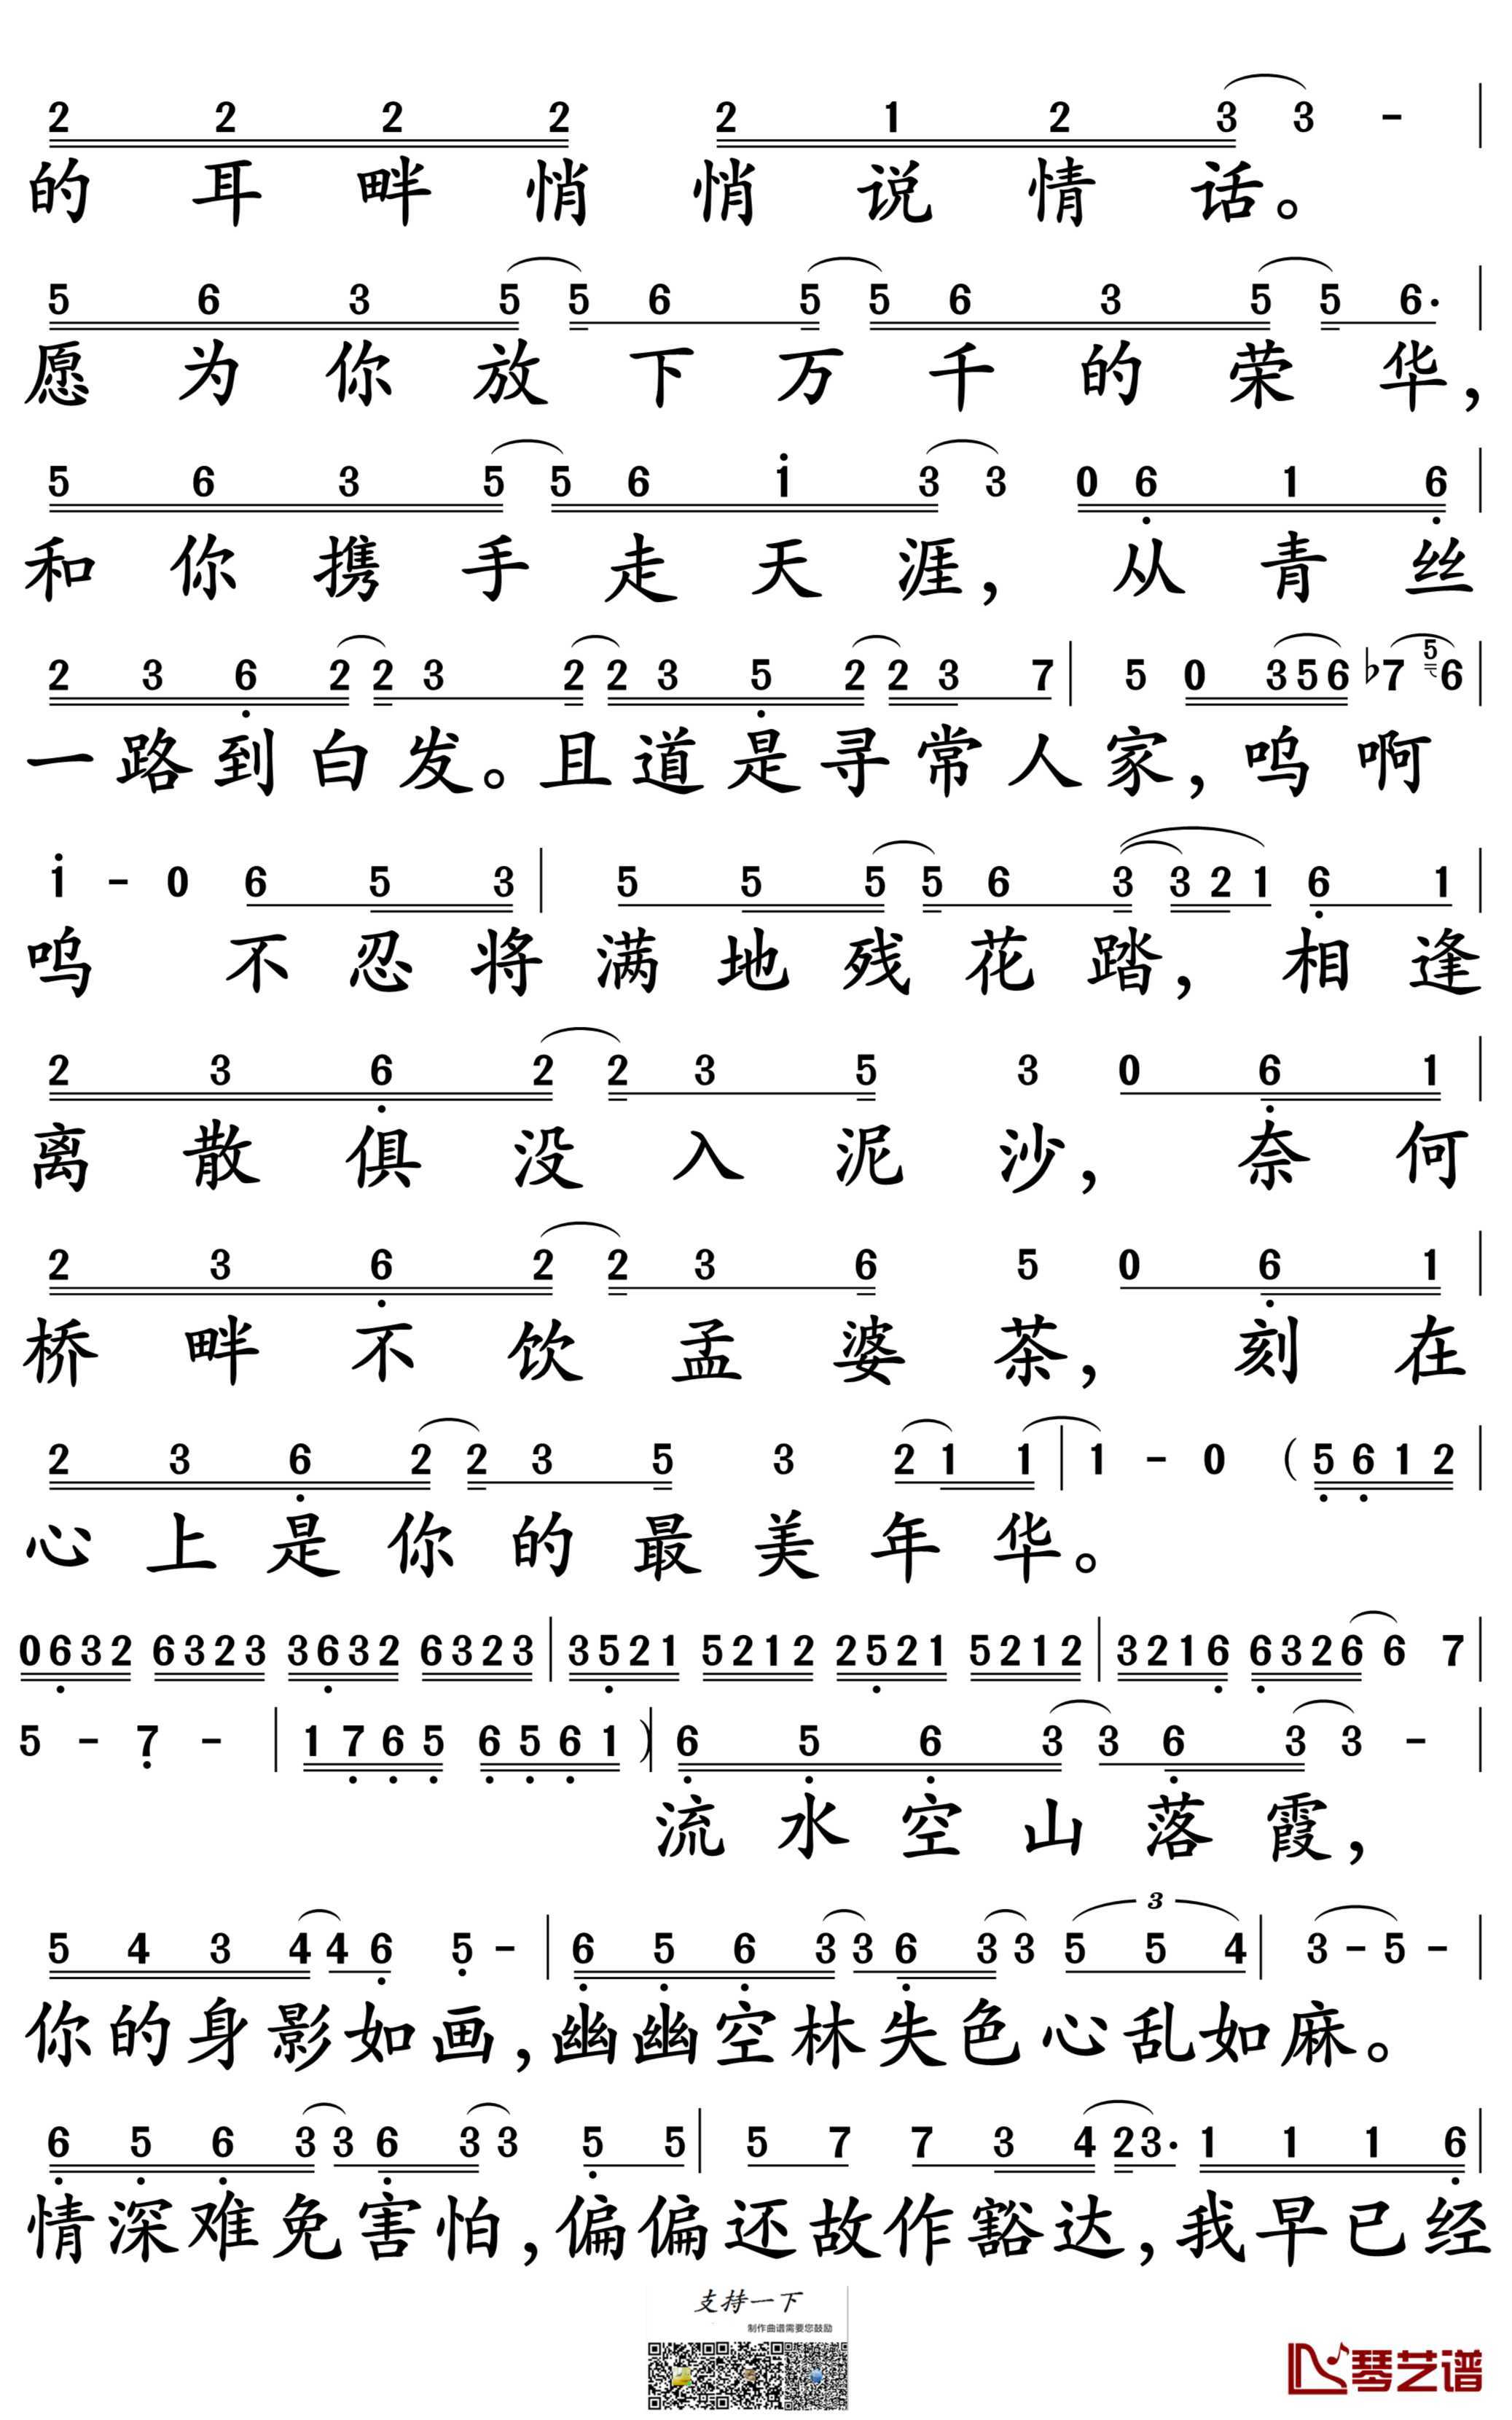 2 2 2 2 2 1 2 3 3 - |
的耳畔悄悄说情话。
5 6 3 5 5 6 5 5 6 3 5 5 6· |
愿为你放下万千的荣华，
5 6 3 5 5 6 1 3 3 0 6 1 6 |
和你携手走天涯，从青丝
2 3 6 2 2 3 2 2 3 5 2 2 3 7 | 5 0 3 5 6 ♭7 5 6 |
一路到白发。且道是寻常人家，呜啊
1 - 0 6 5 3 | 5 5 5 5 6 3 3 2 1 6 1 |
呜不忍将满地残花踏，相逢
2 3 6 2 2 3 5 3 0 6 1 |
离散俱没入泥沙，奈何
2 3 6 2 2 3 6 5 0 6 1 |
桥畔不饮孟婆茶，刻在
2 3 6 2 2 3 5 3 2 1 1 | 1 - 0 (5 6 1 2 |
心上是你的最美年华。
0632 6323 3632 6323 | 3521 5212 2521 5212 | 3216 6326 6 7 |
5 - 7 - | 1765 6561 ) | 6 5 6 3 3 6 3 3 - |
流水空山落霞，
5 4 3 4 4 6 5 - | 6 5 6 3 3 6 3 3 3 5 5 4 | 3 - 5 - |
你的身影如画，幽幽空林失色心乱如麻。
6 5 6 3 3 6 3 3 5 5 | 5 7 7 3 4 2 3· 1 1 1 6 |
情深难免害怕，偏偏还故作豁达，我早已经
支持一下
制作曲谱需要您鼓励
琴艺谱